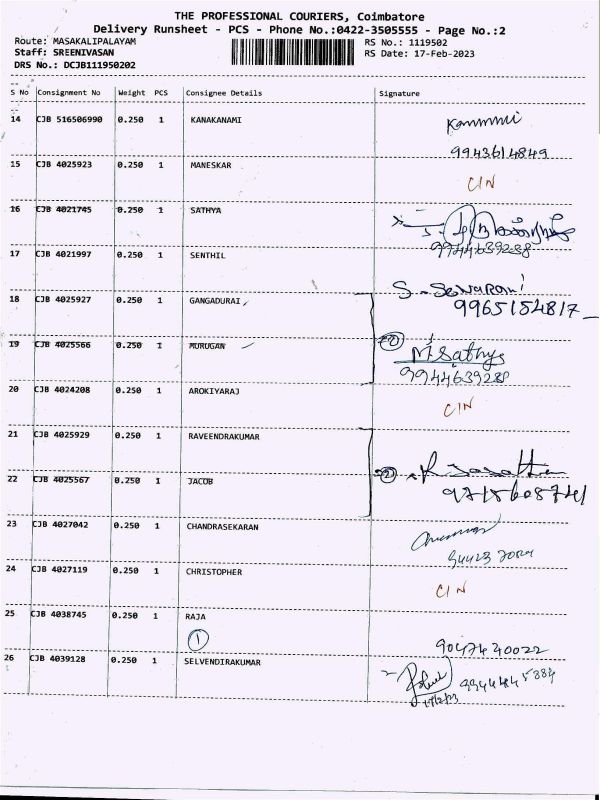 THE PROFESSIONAL COURIERS, Coimbatore
Delivery Runsheet - PCS - Phone No.:0422-3505555 - Page No.:2
Route: MASAKALIPALAYAM RS No.: 1119502
Staff: SREENIVASAN RS Date: 17-Feb-2023
DRS No.: DCJB111950202
S No Consignment No Weight PCS Consignee Details Signature
14 CJB 516506990 0.250 1 KANAKANAMI
9943614849
15 CJB 4025923 0.250 1 MANESKAR CIN
16 CJB 4021745 0.250 1 SATHYA
9944639288
17 CJB 4021997 0.250 1 SENTHIL
S. Selvarani
18 CJB 4025927 0.250 1 GANGADURAI 9965154817
19 CJB 4025566 0.250 1 MURUGAN M. Sathya
9944639288
20 CJB 4024208 0.250 1 AROKIYARAJ CIN
21 CJB 4025929 0.250 1 RAVEENDRAKUMAR
22 CJB 4025567 0.250 1 JACOB 9715608741
23 CJB 4027042 0.250 1 CHANDRASEKARAN
24 CJB 4027119 0.250 1 CHRISTOPHER CIN
25 CJB 4038745 0.250 1 RAJA
1 9047420022
26 CJB 4039128 0.250 1 SELVENDIRAKUMAR
17/2/23